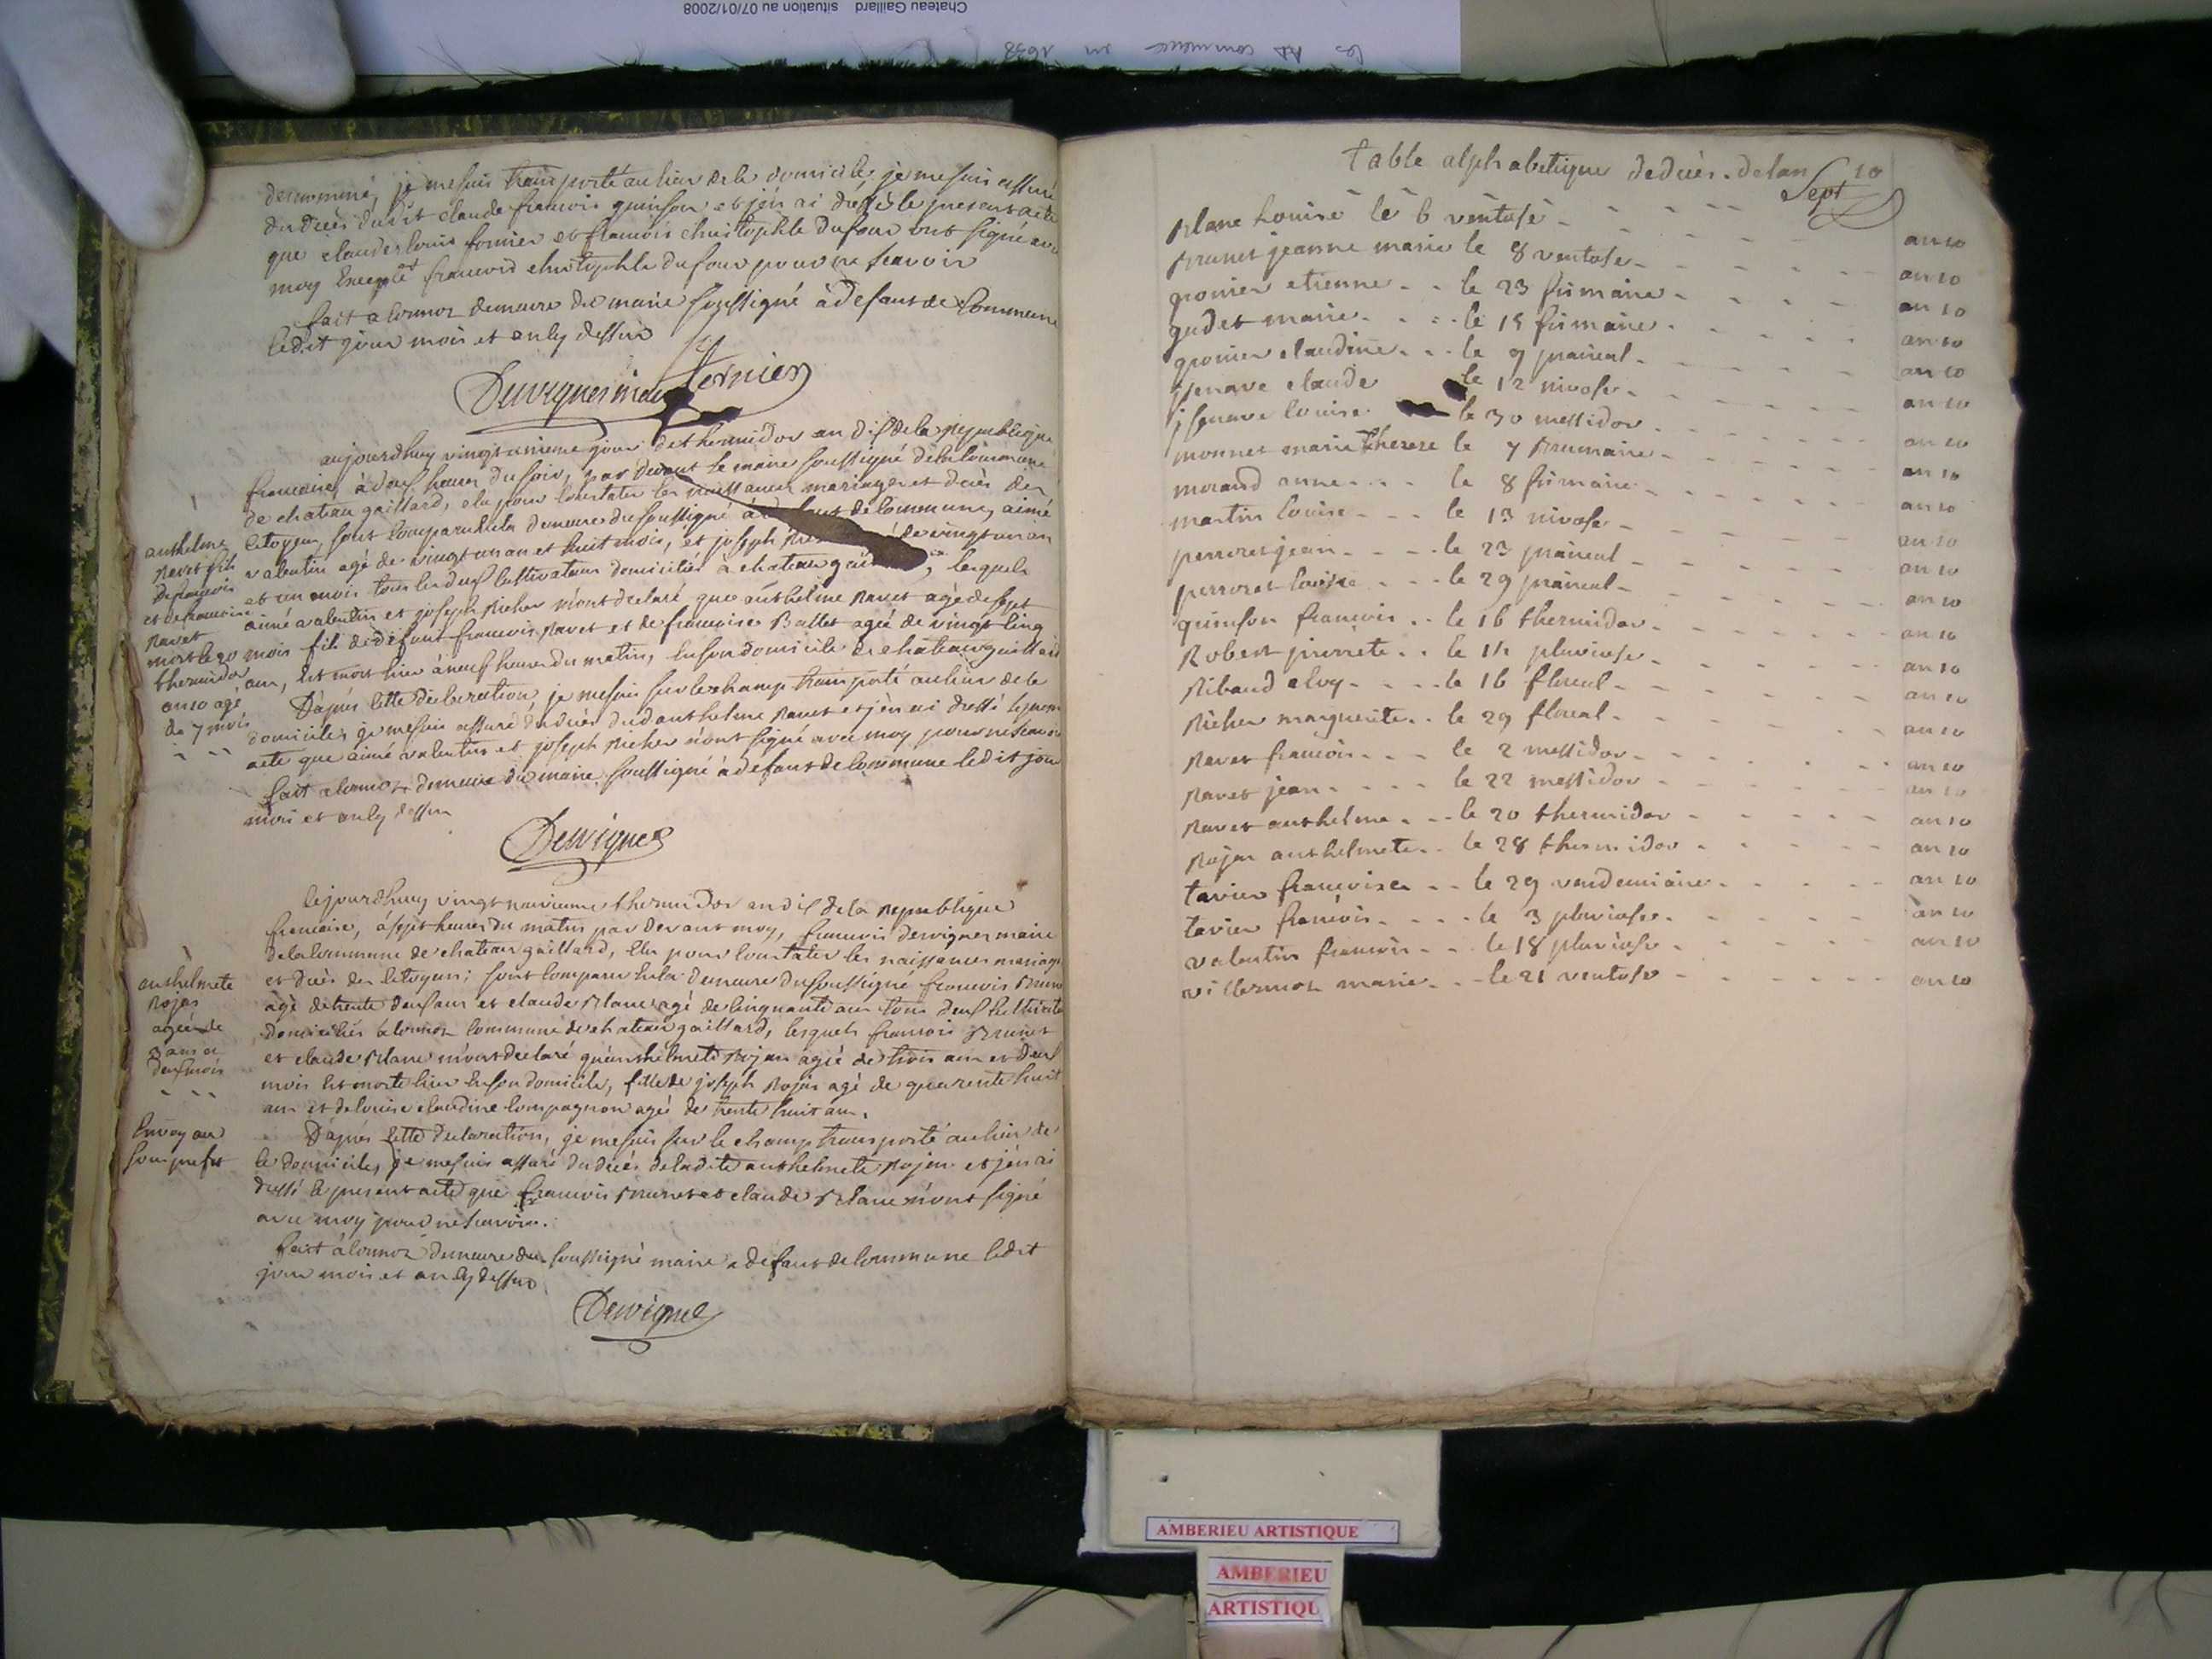 Chateau Gaillard situation au 07/01/2008
les commence en 1638
denommé, je me suis transporté au lieu de le domicile, je me suis assuré
du décès dudit claude francois quinson et j'en ai dressé le present acte
que claude louis fornier et francois christophle dufour ont signé avec
moy Excepté francois christophle dufour pour ne scavoir
fait a cormoz demeure du maire soussigné à defaut de Commune
ledit jour mois et an cy dessus
Dervignes maire fornier
aujourdhuy vingt unieme jour de thermidor an dix de la republique
francaise, à deux heures du soir, par devant le maire soussigné de la commune
de chateau gaillard, elu pour constater les naissances mariages et decès des
Citoyens, sont comparu à la demeure du soussigné à defaut de commune, aimé
valentin agé de vingt un an et huit mois, et joseph de vingt un an
et un mois tous les deux cultivateurs domiciliés à chateau gaillard, lesquels
aimé valentin et joseph Richer m'ont declaré que anthelme Ravet agé de sept
mois fils de defunt francois Ravet et de francoise Ballet agée de vingt cinq
ans, est mort hier à neuf heures du matin, en son domicile de chateau gaillard
D'après cette declaration, je me suis sur le champ transporté au lieu de le
domicile, je me suis assuré du decès dudit anthelme Ravet et j'en ai dressé le present
acte que aimé valentin et joseph Richer n'ont signé avec moy pour ne scavoir
fait a cormoz demeure du maire soussigné à defaut de commune ledit jour
mois et an cy dessus
Dervignes
anthelme
Ravet fils
de francois
et de francoise
Ravet
mort le 20
thermidor
an 10 agé
de 7 mois
Cejourdhuy vingt neuvieme thermidor an dix de la Republique
francaise, à sept heures du matin par devant moy, francois dervignes maire
de la commune de chateau gaillard, elu pour constater les naissances mariages
et decès des citoyens; sont comparu à la demeure du soussigné francois Brunet
agé de trente deux ans et claude Blanc agé de cinquante ans tous deux cultivateurs
domiciliés à cormoz commune de chateau gaillard, lesquels francois Brunet
et claude Blanc m'ont declaré qu'anthelmete Rojon agée de trois ans et deux
mois est morte hier en son domicile, fille de joseph Rojon agé de quarente huit
ans et de louise claudine compagnon agée de trente huit ans.
D'après cette declaration, je me suis sur le champ transporté au lieu de
le domicile, je me suis assuré du decès de ladite anthelmete Rojon et j'en ai
dressé le present acte que francois Brunet et claude Blanc n'ont signé
avec moy pour ne scavoir.
fait à cormoz demeure du soussigné maire a defaut de commune ledit
jour mois et an cy dessus
Dervignes
anthelmete
Rojon
agée de
3 ans et
deux mois
Envoy au
sous prefet
table alphabetique de decès. de lan 10
Sept
Blanc Louise le 6 ventose an 10
Brunet jeanne marie le 8 ventose an 10
gronier etienne le 23 frimaire an 10
gudet marie le 15 frimaire an 10
gronier claudine le 9 prairial an 10
jsenave claude le 12 nivose an 10
jsenave louise le 30 messidor an 10
monnet marie therese le 7 Brumaire an 10
morand anne le 8 frimaire an 10
martin louise le 13 nivose an 10
perroret jean le 23 prairial an 10
perroret louise le 29 prairial an 10
quinson francois le 16 thermidor an 10
Robert pierrete le 14 pluviose an 10
Ribaud eloy le 16 floreal an 10
Richer marguerite le 29 floreal an 10
Ravet francois le 2 messidor an 10
Ravet jean le 22 messidor an 10
Ravet anthelme le 20 thermidor an 10
Rojon anthelmete le 28 thermidor an 10
tavier francoise le 29 vendemiaire an 10
tavier francois le 3 pluviose an 10
valentin francois le 18 pluviose an 10
villermoz marie le 21 ventose an 10
AMBERIEU ARTISTIQUE
AMBERIEU
ARTISTIQU